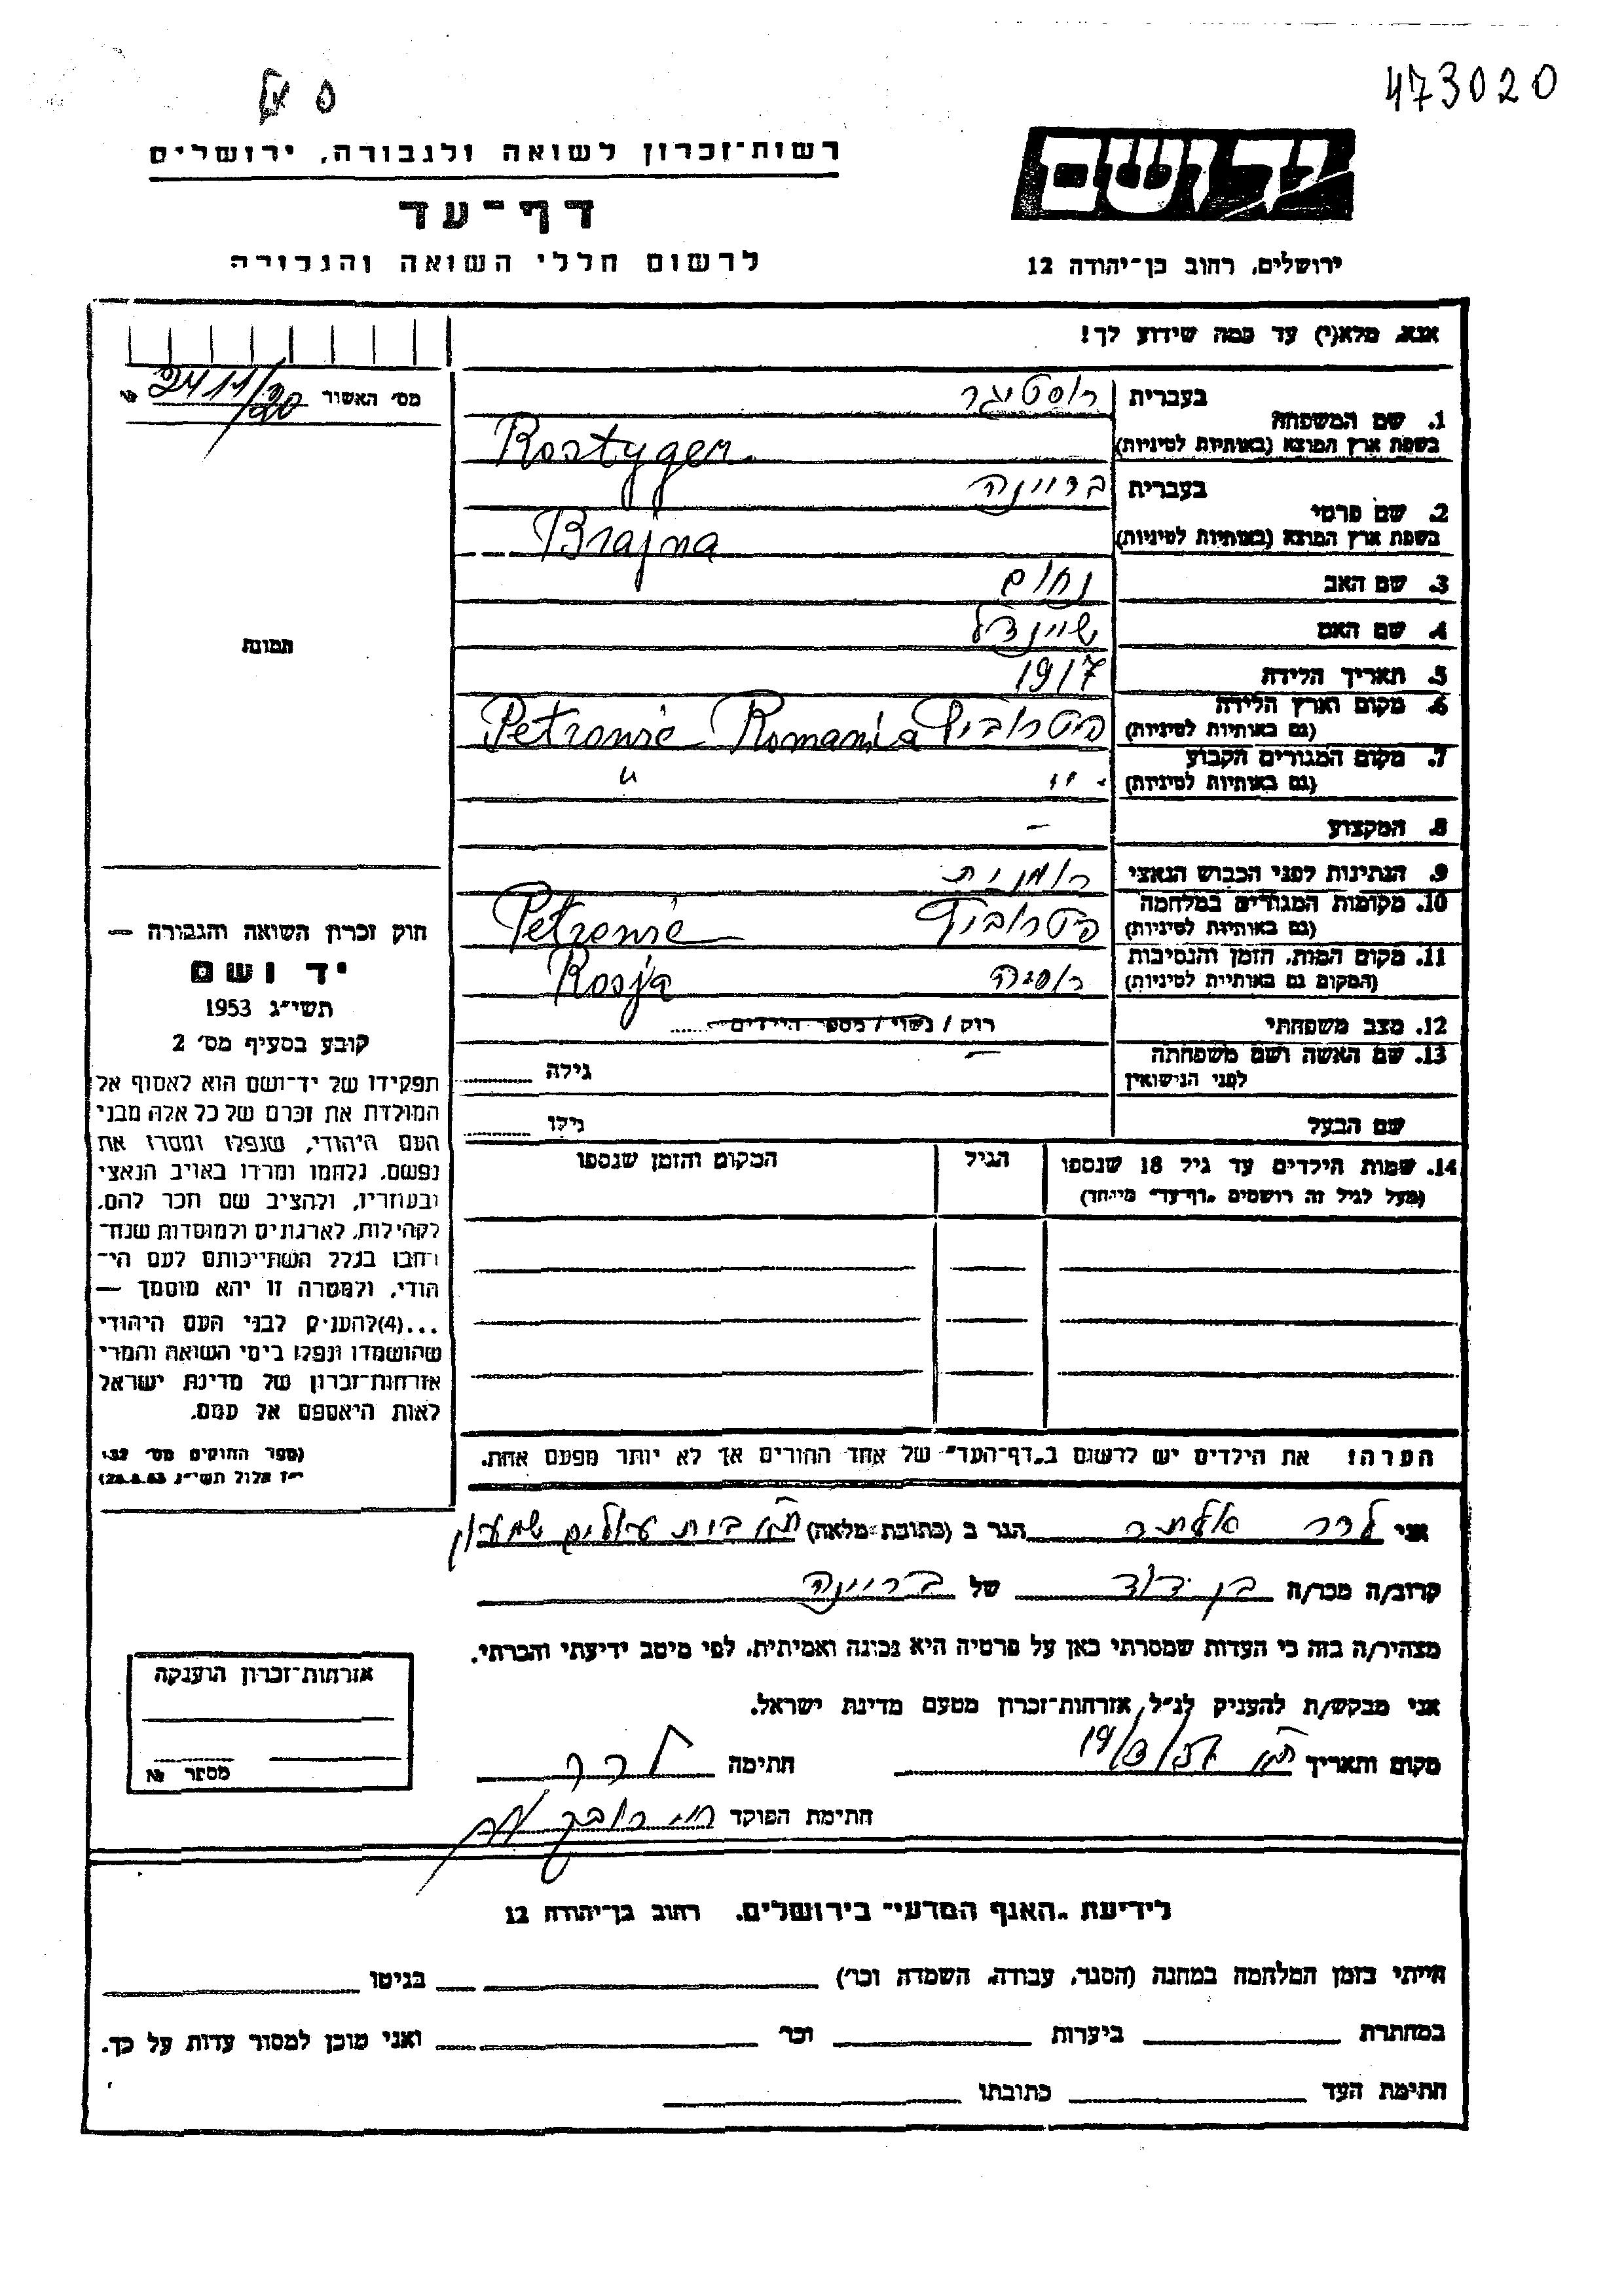 473020
רשות־זכרון לשואה ולגבורה, ירושלים
דף־עד
לרשום חללי השואה והגבורה
יד ושם
ירושלים, רחוב בן־יהודה 12
אנא, מלא(י) עד כמה שידוע לך!
מס׳ האשור № 2411/20
1. שם המשפחה בעברית רוסטיגר
בשפת ארץ המוצא (באותיות לטיניות) Rostyger
2. שם פרטי בעברית בריינה
בשפת ארץ המוצא (באותיות לטיניות) Brajna
3. שם האב נחום
4. שם האם שיינדל
5. תאריך הלידה 1917
6. מקום וארץ הלידה (גם באותיות לטיניות) פיטרוביץ Petrowic Romania
7. מקום המגורים הקבוע (גם באותיות לטיניות) - " - "
8. המקצוע –
9. הנתינות לפני הכבוש הנאצי רומנית
10. מקומות המגורים במלחמה (גם באותיות לטיניות) פיטרוביץ Petrowic
11. מקום המות, הזמן והנסיבות (המקום גם באותיות לטיניות) רוסיה Rosja
12. מצב משפחתי רוק / נשוי / מספר הילדים
13. שם האשה ושם משפחתה לפני הנישואין – גילה
שם הבעל גילו
14. שמות הילדים עד גיל 18 שנספו הגיל המקום והזמן שנספו
(מעל לגיל זה רושמים „דף־עד״ מיוחד)
הערה: את הילדים יש לרשום ב„דף־העד״ של אחד ההורים אך לא יותר מפעם אחת.
תמונה
חוק זכרון השואה והגבורה —
יד ושם
תשי״ג 1953
קובע בסעיף מס׳ 2
תפקידו של יד־ושם הוא לאסוף אל
המולדת את זכרם של כל אלה מבני
העם היהודי, שנפלו ומסרו את
נפשם, נלחמו ומרדו באויב הנאצי
ובעוזריו, ולהציב שם וזכר להם,
לקהילות, לארגונים ולמוסדות שנח־
רחבו בגלל השתייכותם לעם הי־
הודי, ולמטרה זו יהא מוסמך —
...(4)להעניק לבני העם היהודי
שהושמדו ונפלו בימי השואה והמרי
אזרחות־זכרון של מדינת ישראל
לאות היאספם אל עמם.
(ספר החוקים מס׳ 132,
י״ז אלול תשי״ג 28.8.53)
אני לרר הגר ב (כתובת מלאה) בית עולים שמעון
קרוב/ה מכר/ה בן דוד של בריינה
מצהיר/ה בזה כי העדות שמסרתי כאן על פרטיה היא נכונה ואמיתית, לפי מיטב ידיעתי והכרתי.
אני מבקש/ת להעניק לנ״ל אזרחות־זכרון מטעם מדינת ישראל.
מקום ותאריך חתימה לרר
חתימת הפוקד
אזרחות־זכרון הוענקה
מספר №
לידיעת „האגף המדעי״ בירושלים, רחוב בן־יהודה 12
הייתי בזמן המלחמה במחנה (הסגר, עבודה, השמדה וכו׳) בגיטו
במחתרת ביערות וכו׳ ואני מוכן למסור עדות על כך.
חתימת העד כתובתו